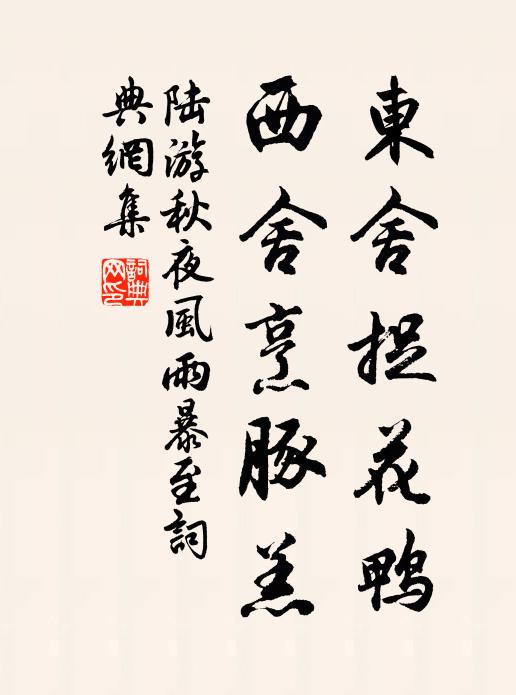 東舍捉花鴨
西舍烹豚羔
陸游秋夜風雨暴至詞
典網集
詞典網印